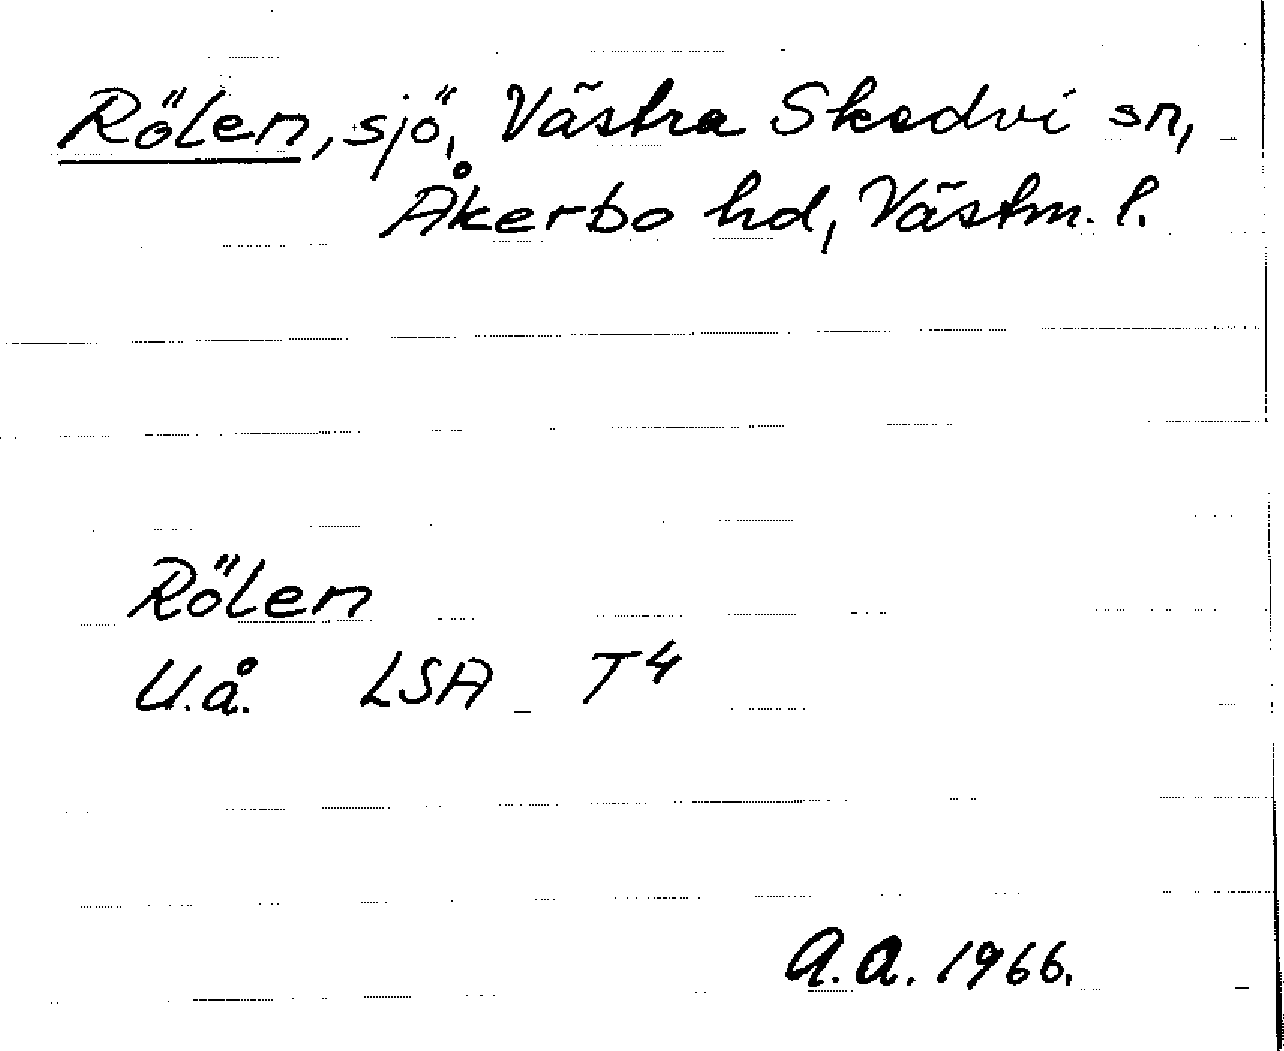 Rölen, sjö, Västra Skedvi sn,
Åkerbo hd, Västm. l.
Rölen
U.å. LSA T4
A.A. 1966.